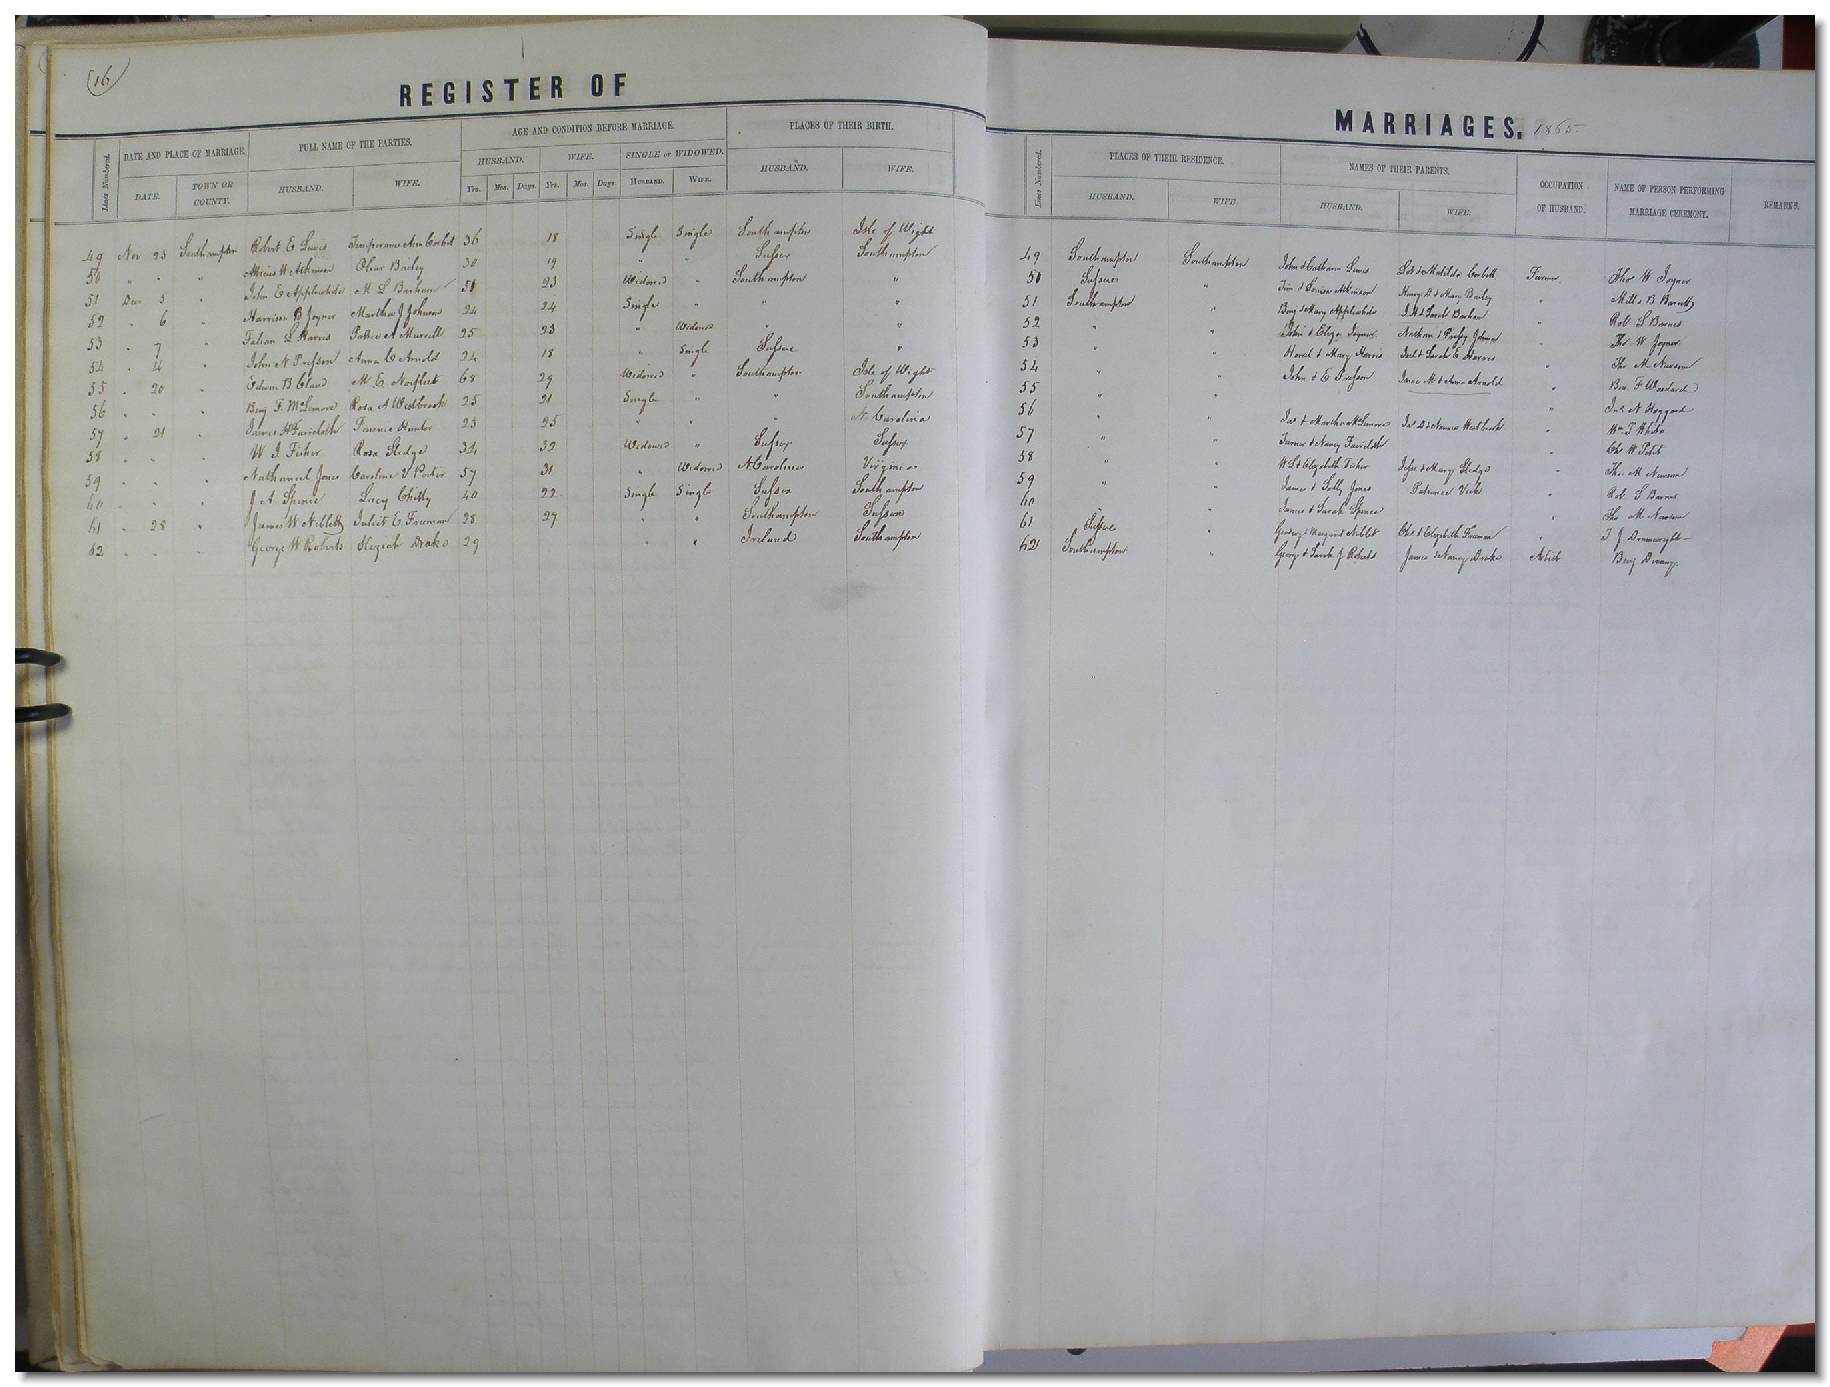 (16)
REGISTER OF
Lines Numbered. DATE AND PLACE OF MARRIAGE. FULL NAME OF THE PARTIES. AGE AND CONDITION BEFORE MARRIAGE. PLACES OF THEIR BIRTH.
DATE. TOWN OR COUNTY. HUSBAND. WIFE. HUSBAND. WIFE. SINGLE or WIDOWED. HUSBAND. WIFE.
Yrs. Mos. Days. Yrs. Mos. Days. HUSBAND. WIFE.
49 Nov 23 Southampton Robert E Lewis Temperance Ann Corbit 36 18 Single Single Southampton Isle of Wight
50 " " " W Atkinson Olive Bailey 30 19 " " Sussex Southampton
51 Dec 5 " John E Applewhite M L Barham 51 23 Widowed " Southampton "
52 " 6 " Harrison B Joyner Martha J Johnson 24 24 Single " " "
53 " 7 " L Harris A Murrell 25 23 " Widowed " "
54 " 14 " John N Presson Anna C Arnold 24 18 " Single Sussex "
55 " 20 " Edwin B Claud M E Norfleet 68 29 Widowed " Southampton Isle of Wight
56 " " " Benj F McLemore Rosa A Westbrook 25 21 Single " " Southampton
57 " 21 " James H Faircloth Hunter 23 25 " " " N Carolina
58 " " " W J Fisher Rosa Sledge 34 32 Widowed " Sussex Sussex
59 " " " Nathaniel Jones Caroline V Porter 57 31 " Widowed N Carolina Virginia
60 " " " J A Spence Lucy Chitty 40 22 Single Single Sussex Southampton
61 " 28 " James W Niblett Juliet E Freeman 28 27 " " Southampton Sussex
62 " " " George W Roberts Keziah Drake 29 " " Ireland Southampton
MARRIAGES, 1865
Lines Numbered. PLACES OF THEIR RESIDENCE. NAMES OF THEIR PARENTS. OCCUPATION OF HUSBAND. NAME OF PERSON PERFORMING MARRIAGE CEREMONY. REMARKS.
HUSBAND. WIFE. HUSBAND. WIFE.
49 Southampton Southampton John & Catharine Lewis & Matilda Corbett Farmer Thos W Joyner
50 Sussex " & Louisa Atkinson Henry D & Mary Bailey " Mills B Barrett
51 Southampton " Benj & Mary Applewhite & Sarah Barham " Rob S Barnes
52 " " John & Eliza Joyner Nathan & Johnson " Thos W Joyner
53 " " & Mary Harris & Sarah E Harris " Tho M Newsom
54 " " John & E Presson M & Anna Arnold " Ben F Woodard
55 " " " Jas N Hoggard
56 " " Jas & Martha McLemore Jas D & Westbrook " Wm T White
57 " " Turner & Nancy Faircloth " Ch W Petit
58 " " W L & Elizabeth Fisher Jesse & Mary Sledge " Tho M Newsom
59 " " James & Sally Jones Patience Vick " Rob S Barnes
60 " " James & Sarah Spence " Tho M Newsom
61 Sussex " George & Margaret Niblet Chs & Elizabeth Freeman " T J Drumwright
62 Southampton " George & Sarah J Roberts James & Nancy Drake Artist Benj